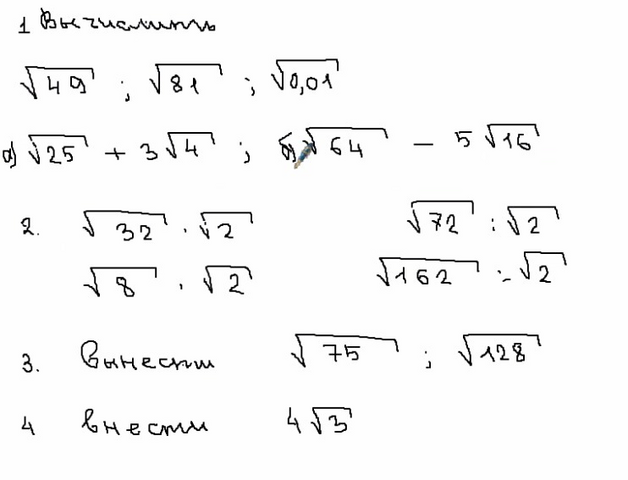 1 Вычислить
√49 ; √81 ; √0,01
а) √25 + 3√4 ; б) √64 – 5√16
2. √32 · √2 √72 : √2
√8 · √2 √162 : √2
3. Вынести √75 ; √128
4 внести 4√3